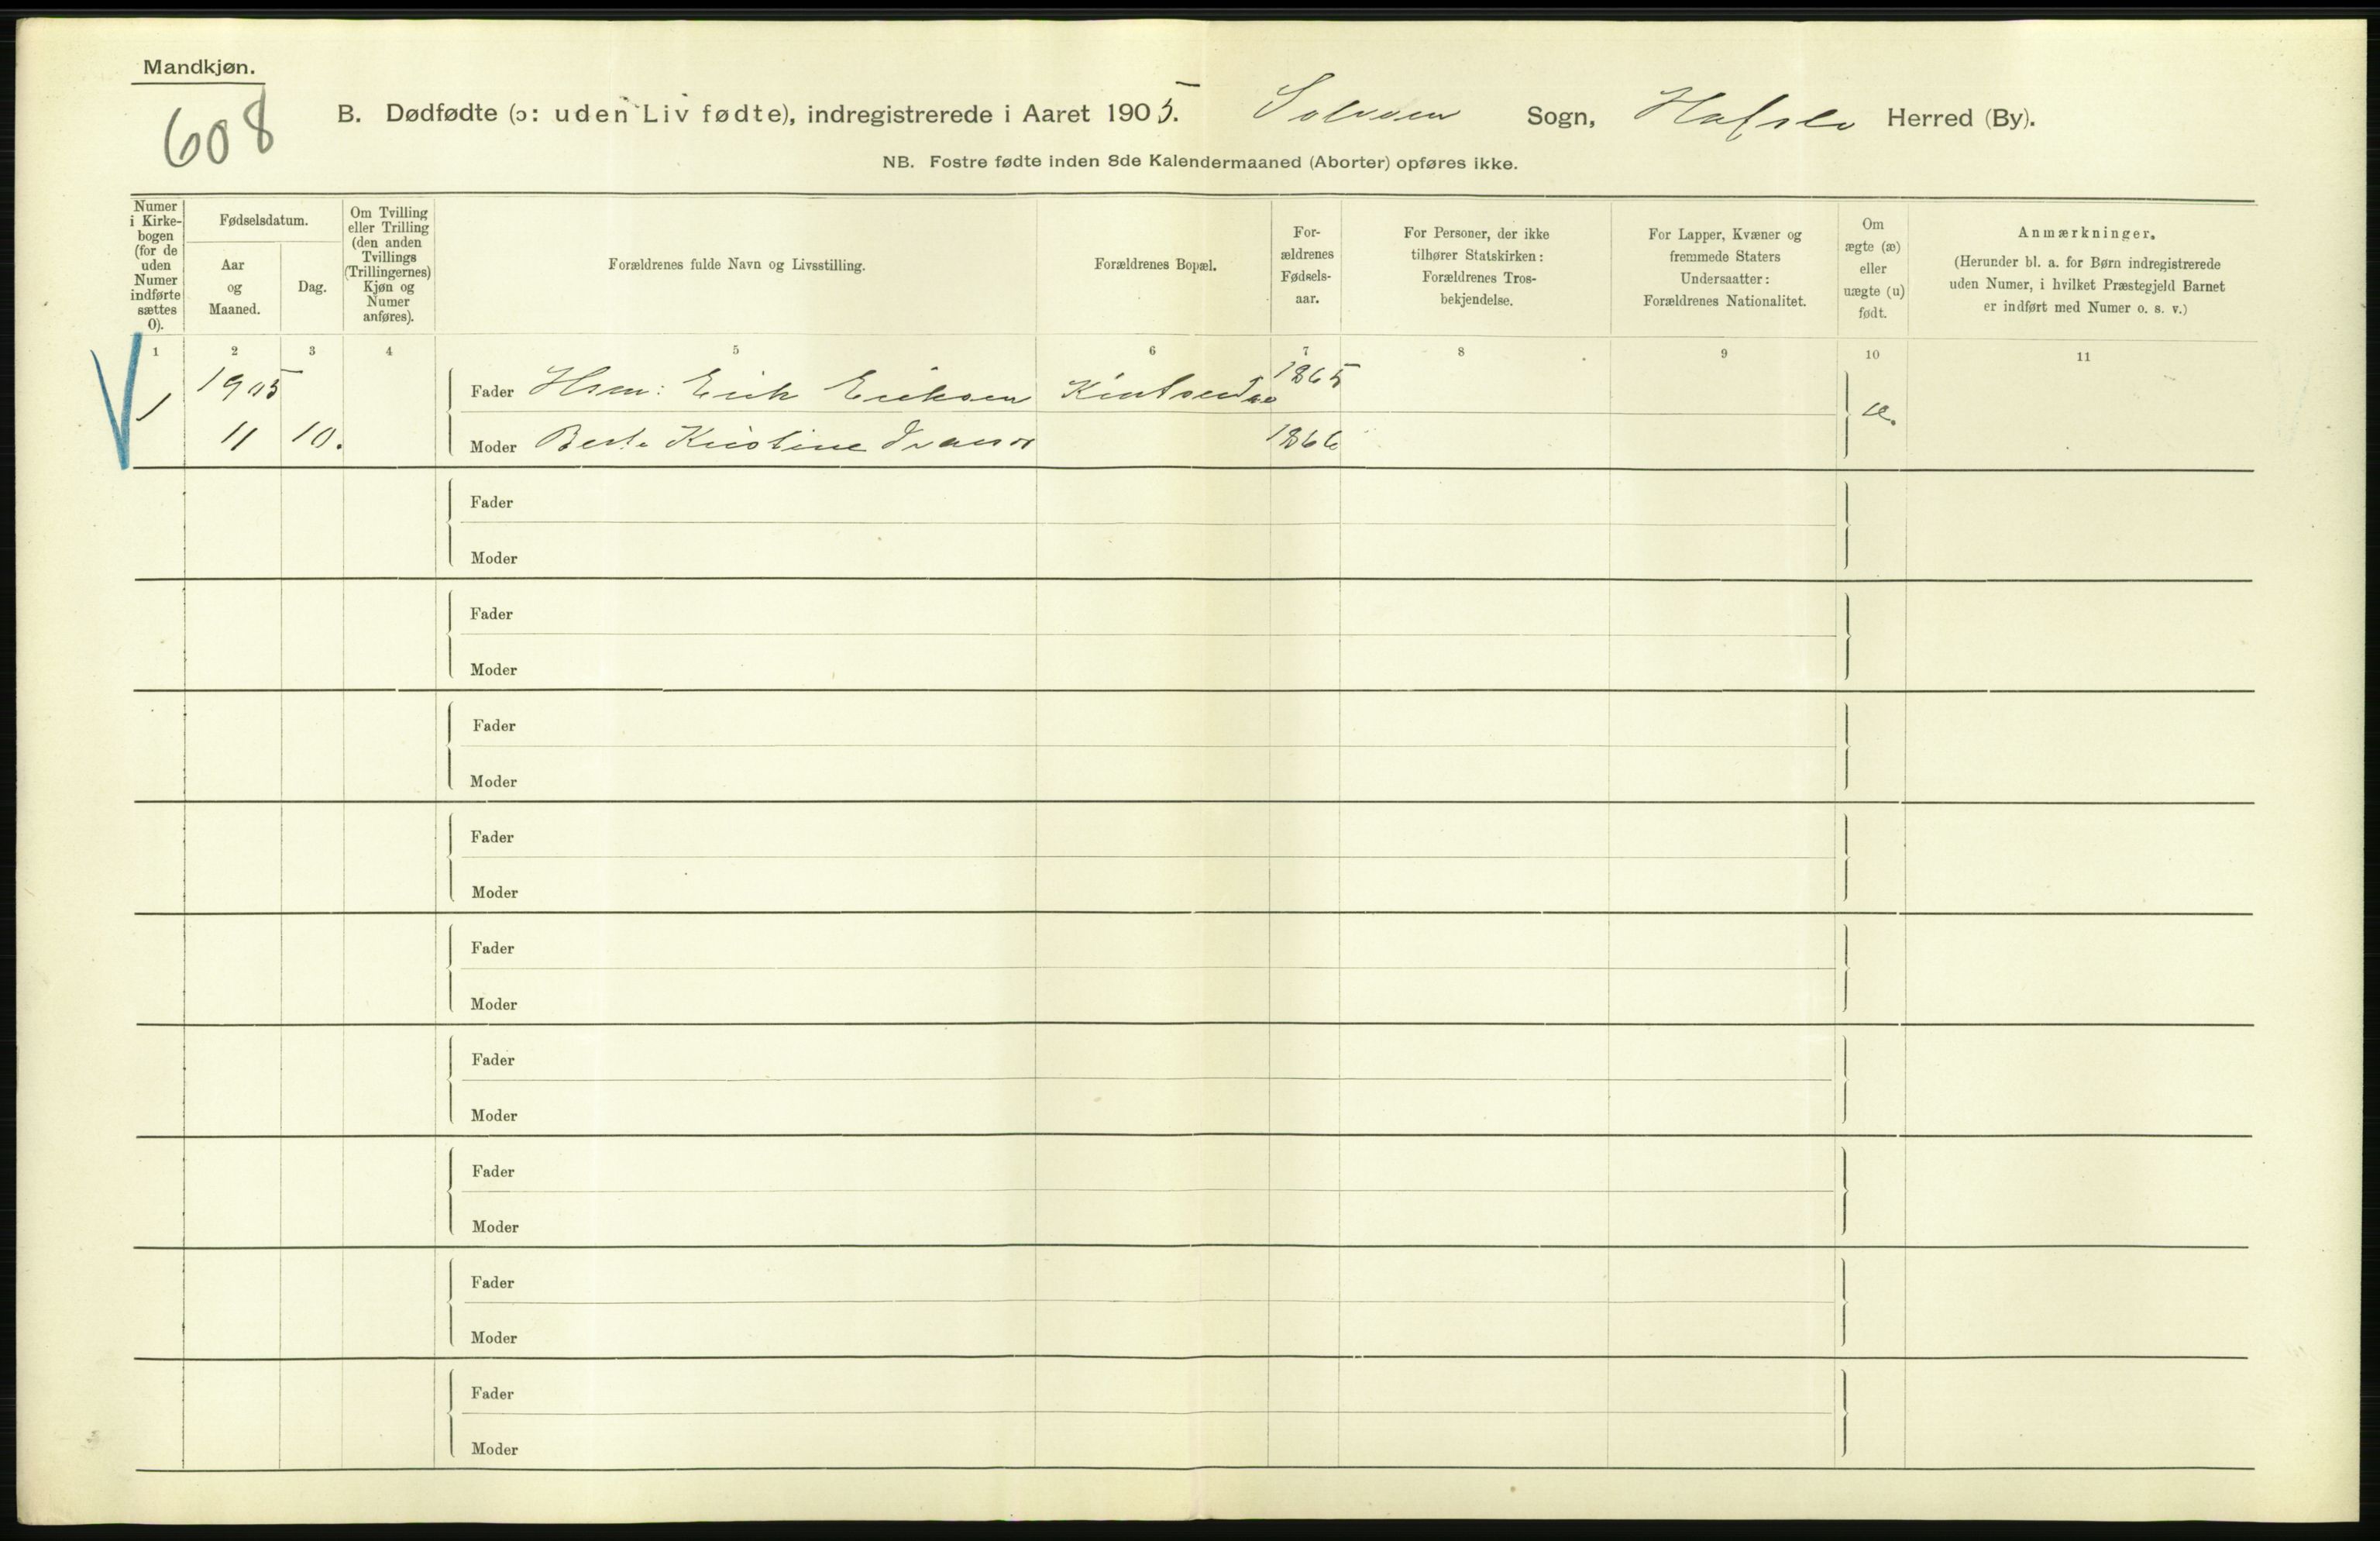 Mandkjøn.
608
B. Dødfødte (ɔ: uden Liv fødte), indregistrerede i Aaret 1905. Solvorn Sogn, Hafslo Herred (By).
NB. Fostre fødte inden 8de Kalendermaaned (Aborter) opføres ikke.
Numer
i Kirke-
bogen
(for de
uden
Numer
indførte
sættes
0).
Fødselsdatum.
Aar
og
Maaned.
Dag.
Om Tvilling
eller Trilling
(den anden
Tvillings
(Trillingernes)
Kjøn og
Numer
anføres).
Forældrenes fulde Navn og Livsstilling.
Forældrenes Bopæl.
For-
ældrenes
Fødsels-
aar.
For Personer, der ikke
tilhører Statskirken:
Forældrenes Tros-
bekjendelse.
For Lapper, Kvæner og
fremmede Staters
Undersaatter:
Forældrenes Nationalitet.
Om
ægte (æ)
eller
uægte (u)
født.
Anmærkninger.
(Herunder bl. a. for Børn indregistrerede
uden Numer, i hvilket Præstegjeld Barnet
er indført med Numer o. s. v.)
1 2 3 4 5 6 7 8 9 10 11
1 1905 Fader Hsm: Erik Eriksen 1865 æ.
11 10. Moder Kristine 1866
Fader
Moder
Fader
Moder
Fader
Moder
Fader
Moder
Fader
Moder
Fader
Moder
Fader
Moder
Fader
Moder
Fader
Moder